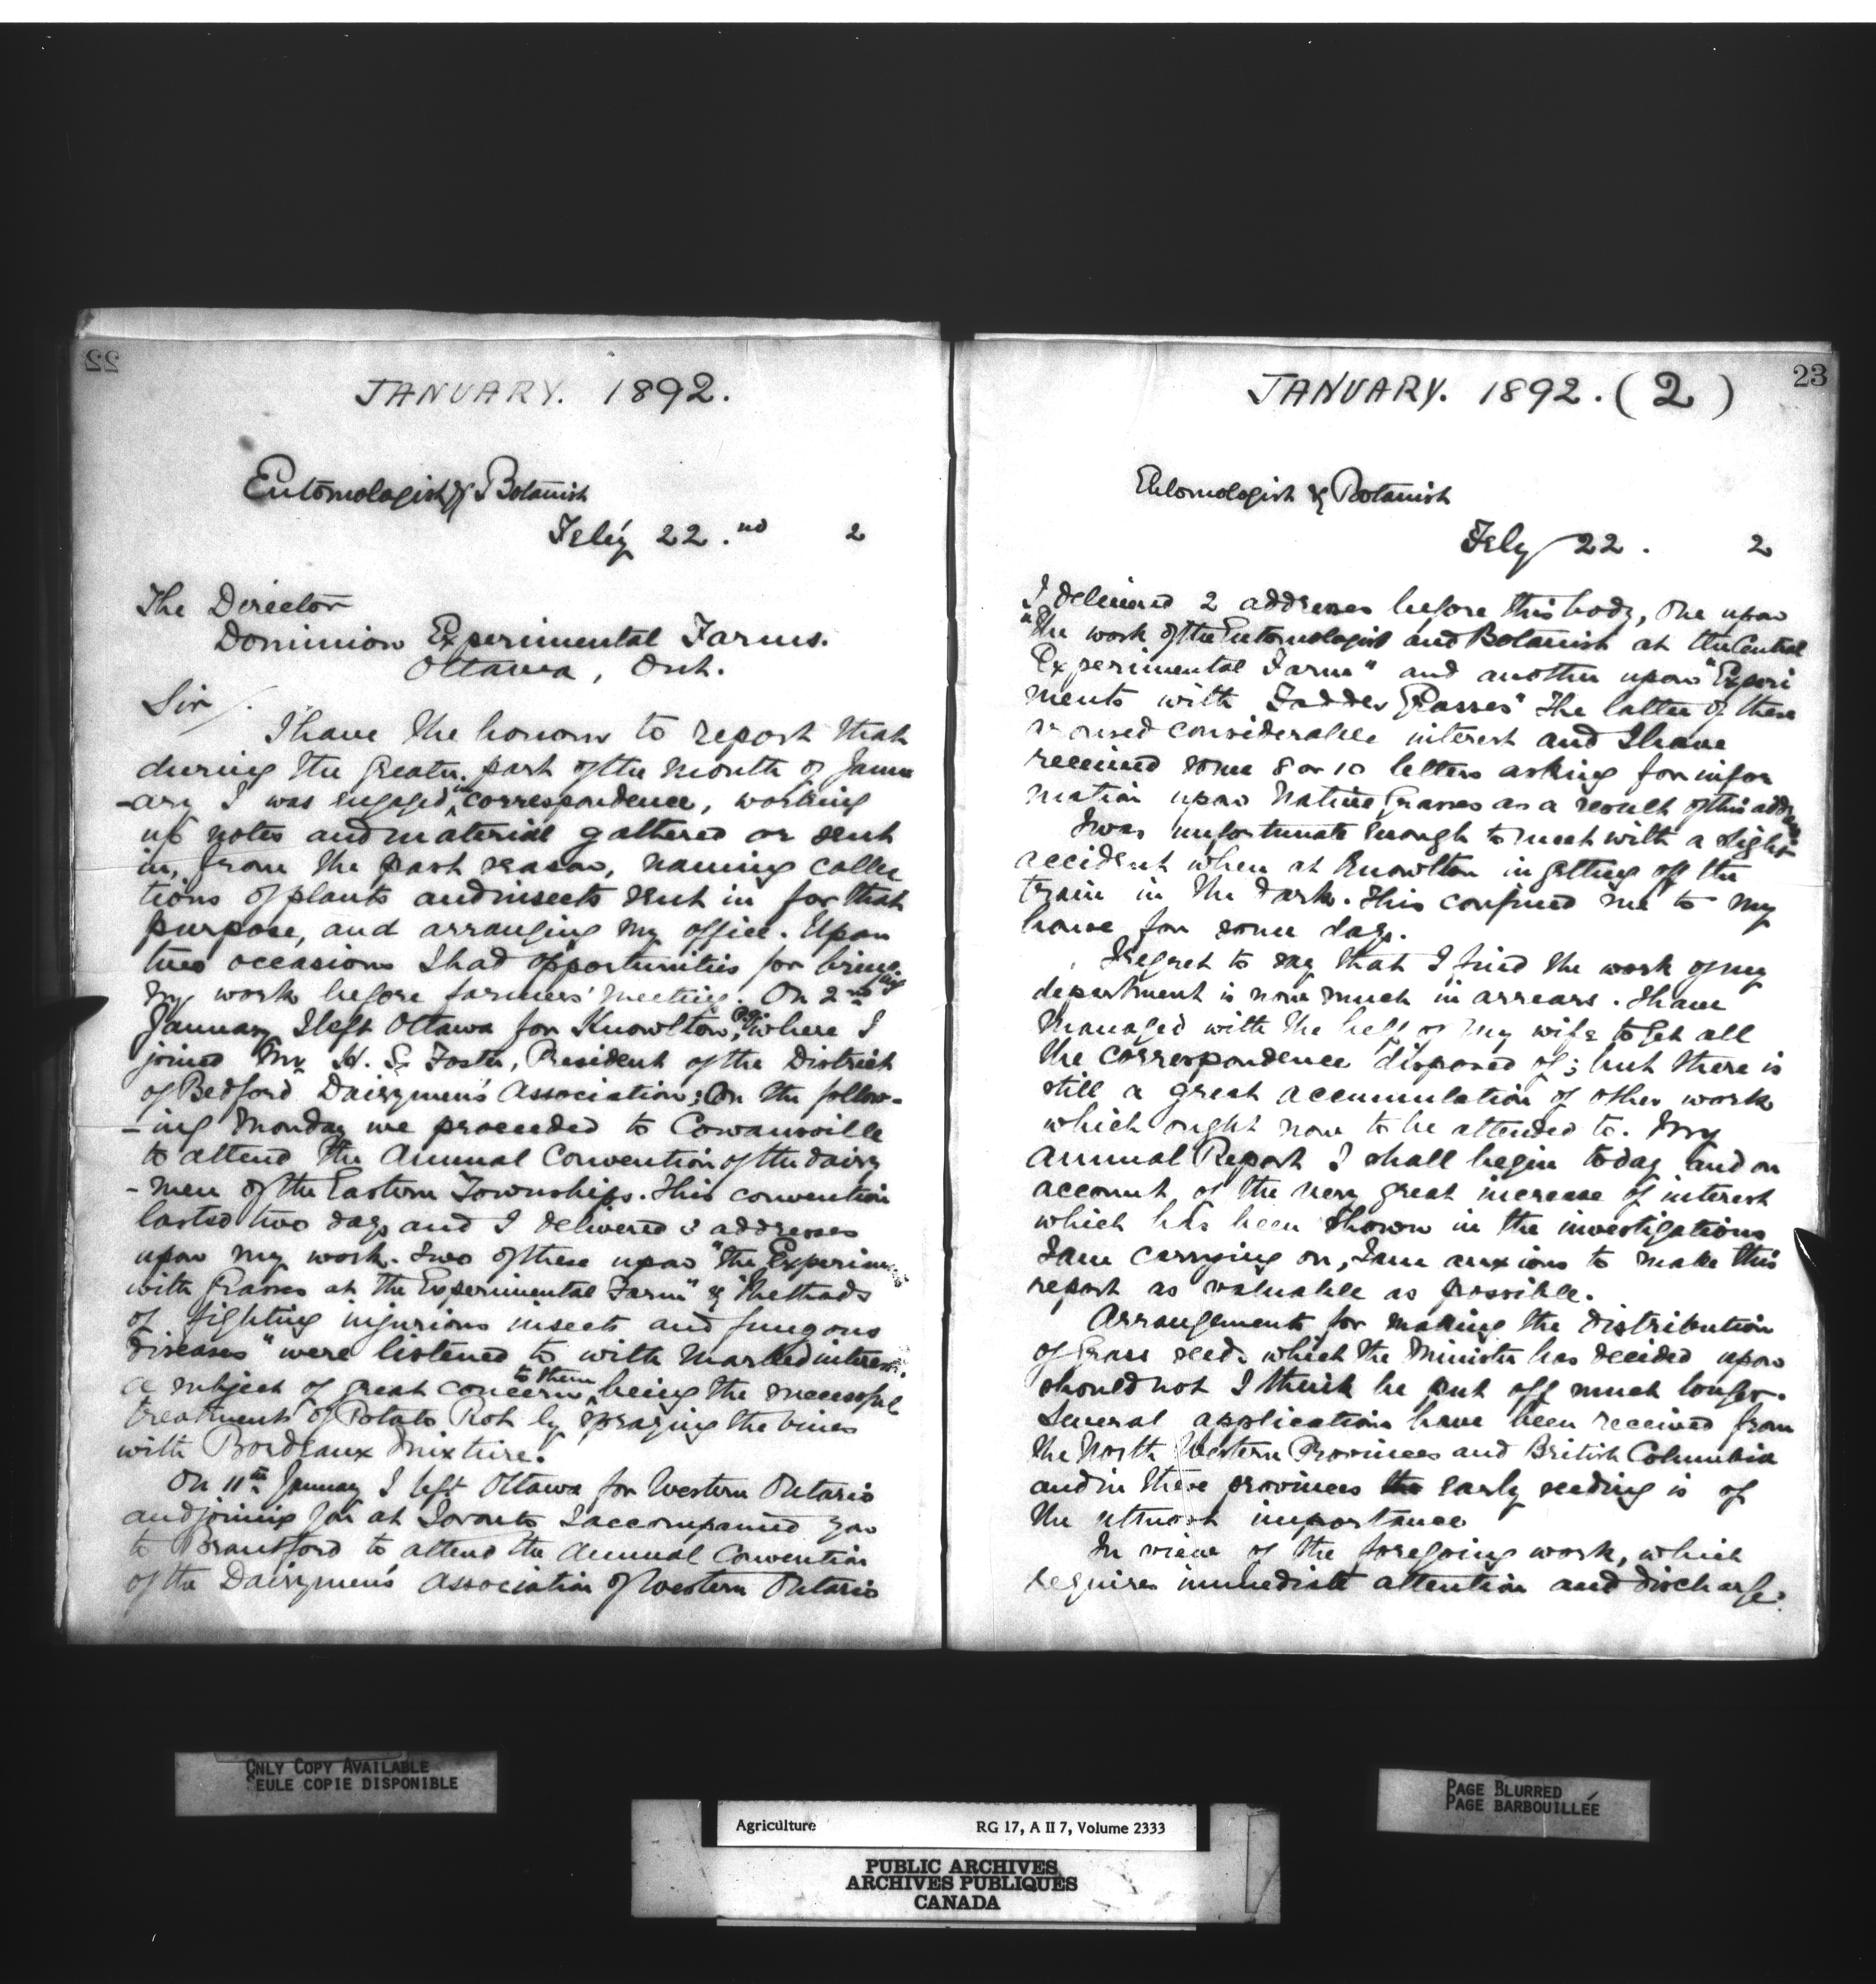 22
JANUARY. 1892.
Entomologist & Botanist
Feb'y 22.nd 2
The Director
Dominion Experimental Farms.
Ottawa, Ont.
Sir/.
I have the honour to report that
during the greater part of the month of Janu
-ary I was engaged in correspondence, working
up notes and material gathered or sent
in, from the past season, naming collec
tions of plants and insects sent in for that
purpose, and arranging my office. Upon
two occasions I had opportunities for bringing
my work before farmers' meetings. On 2nd
January, I left Ottawa for Knowlton, P.Q. where I
joined Mr. H. S. Foster, President of the District
of Bedford Dairymen's Association; On the follow-
-ing Monday we proceeded to Cowansville
to attend the Annual Convention of the dairy
-men of the Eastern Townships. This convention
lasted two days and I delivered 3 addresses
upon my work. Two of these upon "the Experim
with Grasses at the Experimental Farm" & "Methods
of fighting injurious insects and fungous
diseases" were listened to with marked interest.
a subject of great concern to them being the successful
treatment of Potato Rot by spraying the vines
with Bordeaux Mixture.
On 11th January I left Ottawa for Western Ontario
and joining you at Toronto I accompanied you
to Brantford to attend the Annual Convention
of the Dairymen's Association of Western Ontario
23
JANUARY. 1892. (2)
Entomologist & Botanist
Feby 22. 2
I delivered 2 addresses before this body, One upon
"The work of the Entomologist and Botanist at the Central
Experimental Farm" and another upon "Experi
ments with Fodder Grasses" The latter of these
aroused considerable interest and I have
received some 8 or 10 letters asking for infor
mation upon Native Grasses as a result of this address
I was unfortunate enough to meet with a slight
accident when at Knowlton in getting off the
train in the dark. This confined me to my
house for some days.
I regret to say that I find the work of my
department is now much in arrears. I have
managed with the help of my wife to get all
the correspondence disposed of; but there is
still a great accumulation of other work
which ought now to be attended to. My
Annual Report I shall begin today and on
account of the very great increase of interest
which has been shown in the investigations
I am carrying on, I am anxious to make this
report as valuable as possible.
Arrangements for making the distribution
of Grass seeds which the Minister has decided upon
should not I think be put off much longer.
Several applications have been received from
the North Western Provinces and British Columbia
and in these provinces early seeding is of
the utmost importance
In view of the foregoing work, which
requires immediate attention and discharge.
ONLY COPY AVAILABLE
SEULE COPIE DISPONIBLE
PAGE BLURRED
PAGE BARBOUILLÉE
Agriculture RG 17, A II 7, Volume 2333
PUBLIC ARCHIVES
ARCHIVES PUBLIQUES
CANADA